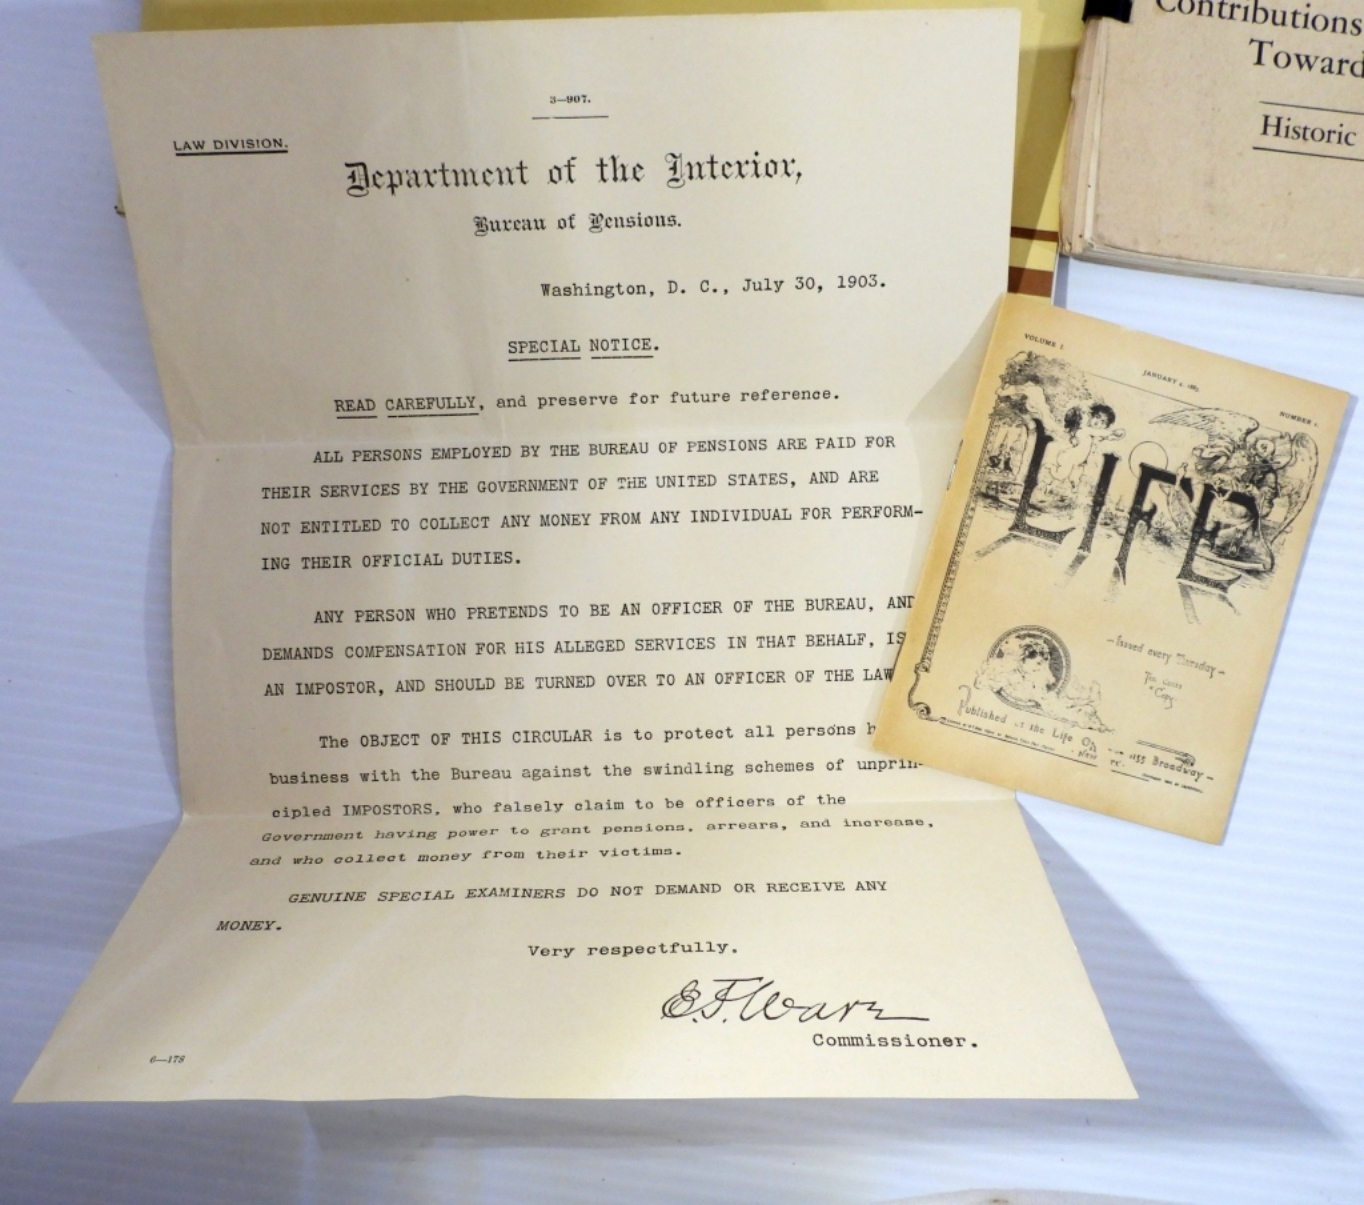 3—907.
LAW DIVISION.
Department of the Interior,
Bureau of Pensions.
Washington, D. C., July 30, 1903.
SPECIAL NOTICE.
READ CAREFULLY, and preserve for future reference.
ALL PERSONS EMPLOYED BY THE BUREAU OF PENSIONS ARE PAID FOR
THEIR SERVICES BY THE GOVERNMENT OF THE UNITED STATES, AND ARE
NOT ENTITLED TO COLLECT ANY MONEY FROM ANY INDIVIDUAL FOR PERFORM-
ING THEIR OFFICIAL DUTIES.
ANY PERSON WHO PRETENDS TO BE AN OFFICER OF THE BUREAU, AND
DEMANDS COMPENSATION FOR HIS ALLEGED SERVICES IN THAT BEHALF, IS
AN IMPOSTOR, AND SHOULD BE TURNED OVER TO AN OFFICER OF THE LAW
The OBJECT OF THIS CIRCULAR is to protect all persons
business with the Bureau against the swindling schemes of unprin-
cipled IMPOSTORS, who falsely claim to be officers of the
Government having power to grant pensions, arrears, and increase,
and who collect money from their victims.
GENUINE SPECIAL EXAMINERS DO NOT DEMAND OR RECEIVE ANY
MONEY.
Very respectfully.
E.F. Ware
Commissioner.
6—178
Contributions
Toward
Historic
VOLUME I.
JANUARY 4, 1883
NUMBER 1.
LIFE
—Issued every Thursday—
Ten Cents
a Copy
Published at the Life
1155 Broadway—
New